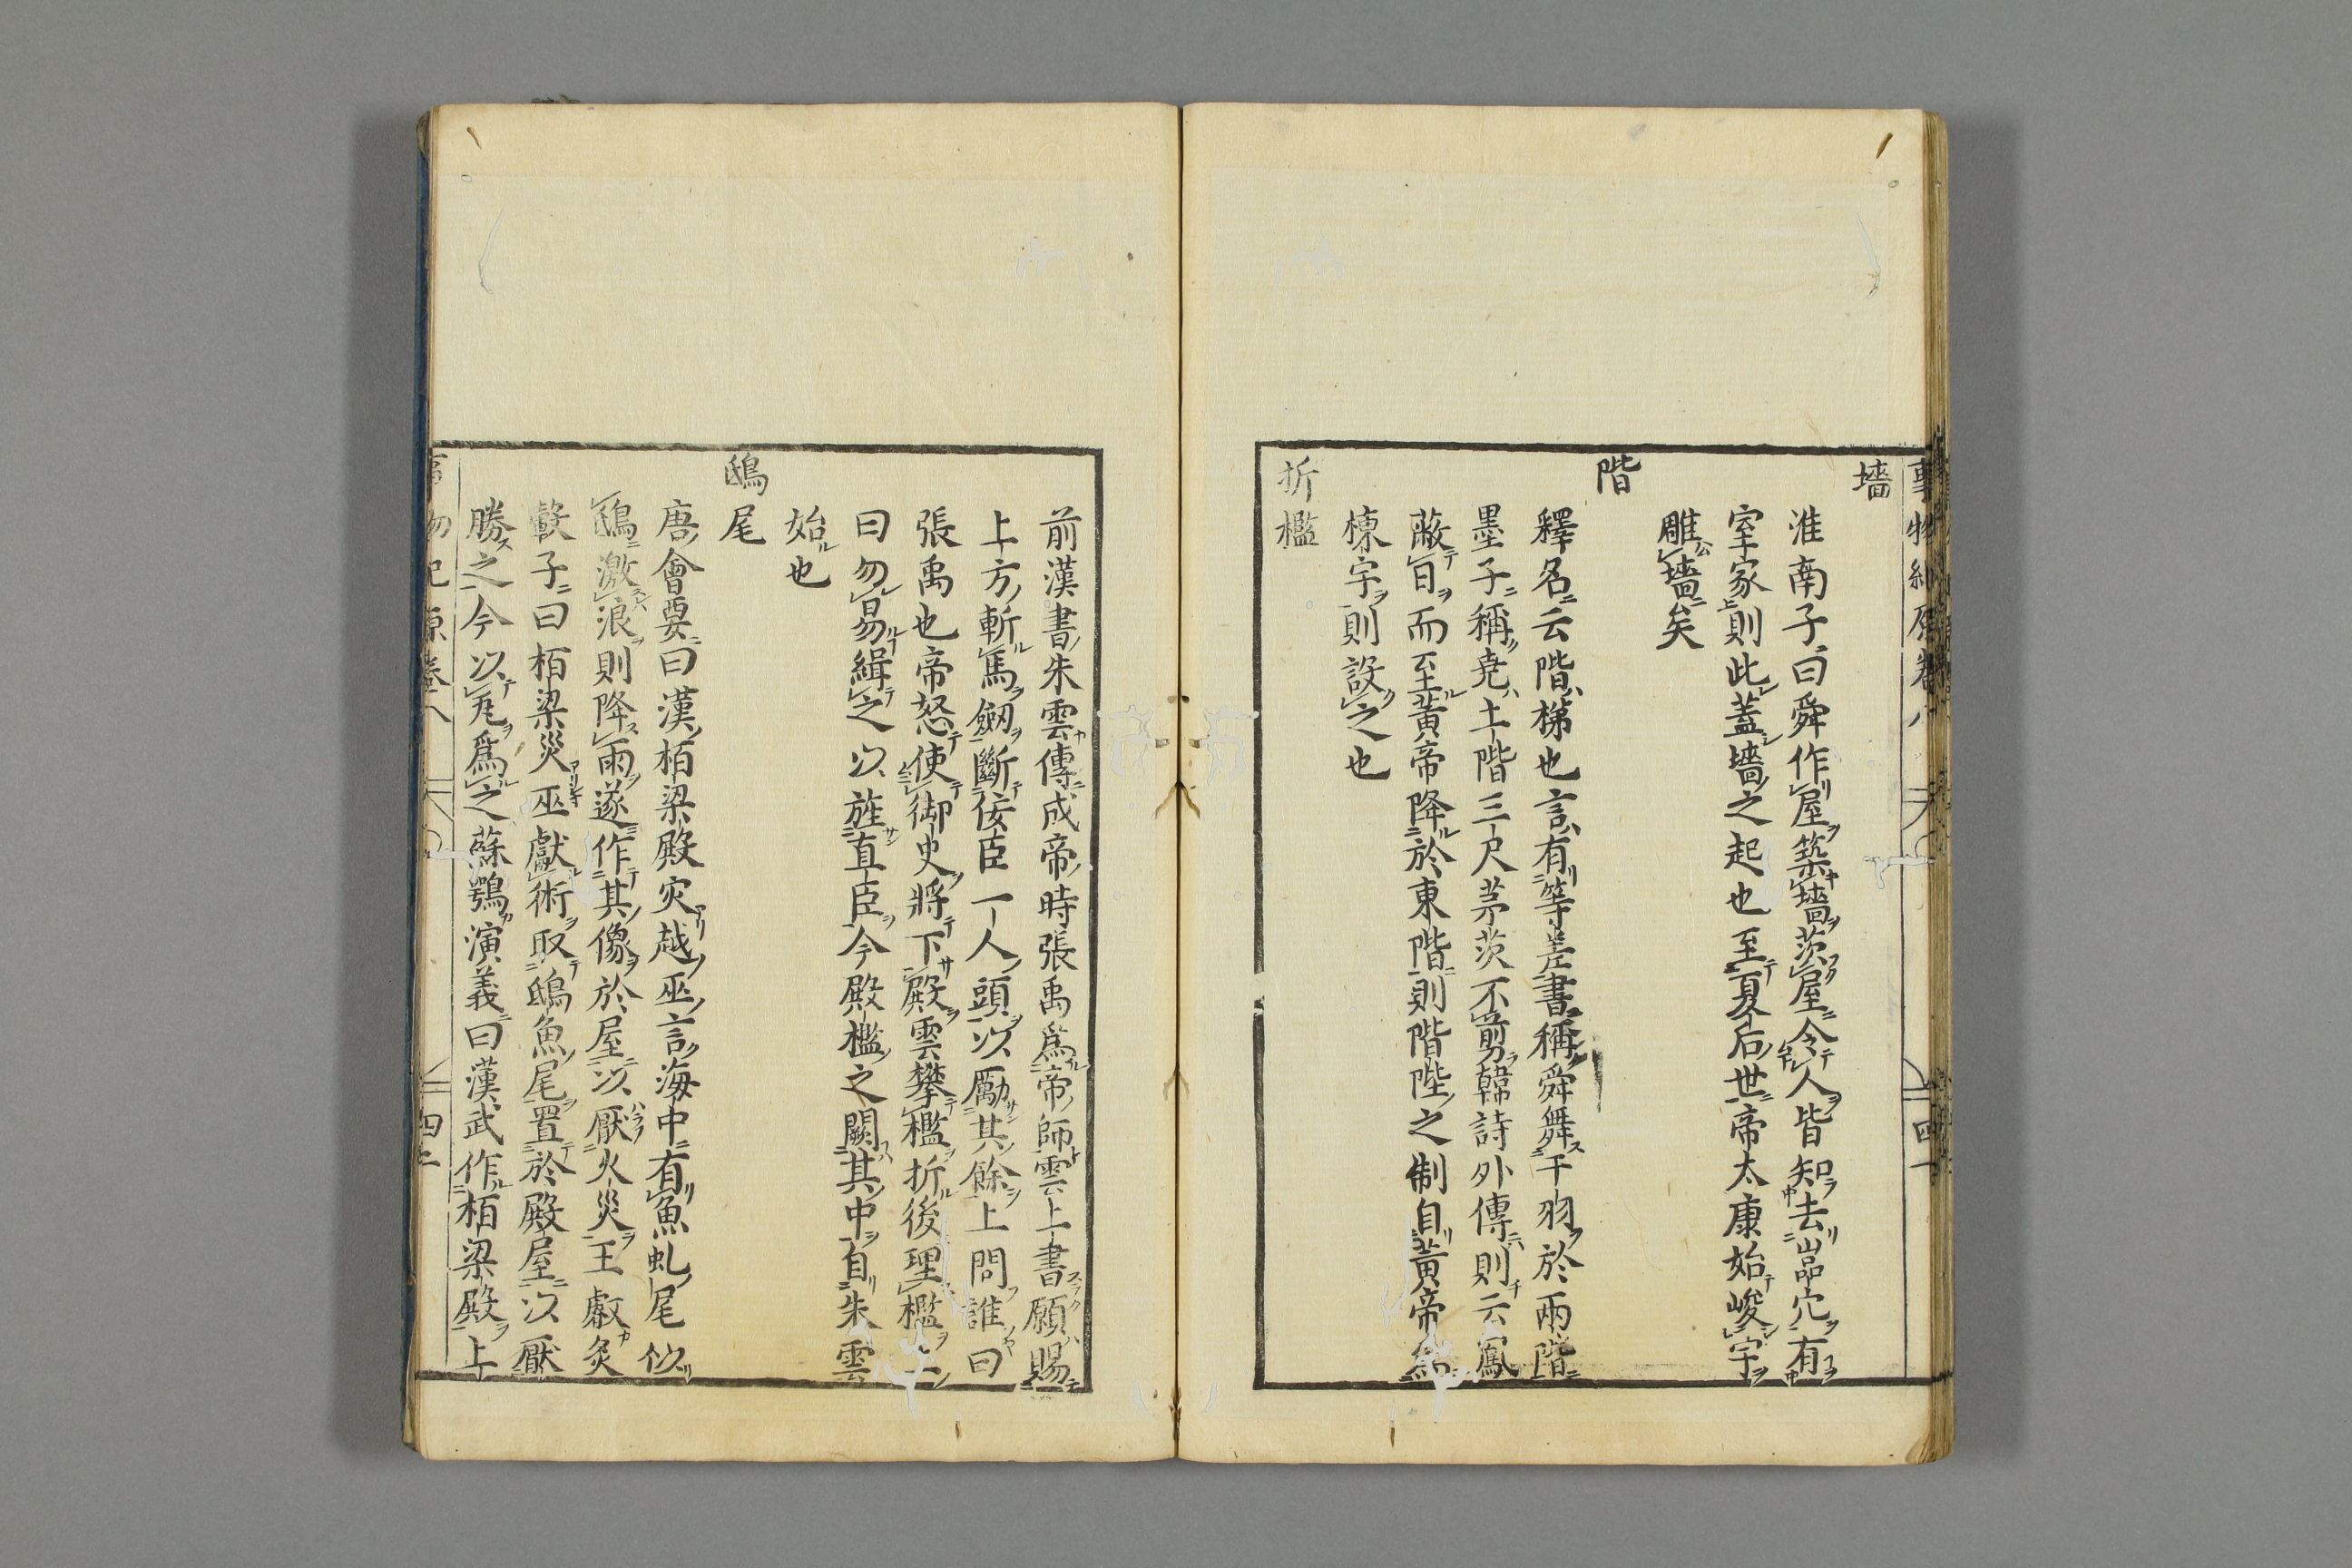 事物紀原卷八 四十一
墻
淮南子曰舜作屋築墻茨屋令人皆知去嵓穴有
室家則此蓋墻之起也至夏后世帝太康始峻宇
雕墻矣
階
釋名云階梯也言有等差書稱舜舞干羽於兩階
墨子稱堯土階三尺茅茨不剪韓詩外傳則云鳳
蔽日而至黃帝降於東階則階陛之制自黃帝爲
棟宇則設之也
折檻
前漢書朱雲傳成帝時張禹爲帝師雲上書願賜
上方斬馬劒斷佞臣一人頭以勵其餘上問誰曰
張禹也帝怒使御史將下殿雲攀檻折後理檻上
曰勿易緝之以旌直臣今殿檻之闕其中自朱雲
始也
鴟尾
唐會要曰漢栢梁殿灾越巫言海中有魚虬尾似
鴟激浪則降雨遂作其像於屋以厭火災王叡炙
轂子曰栢梁災巫獻術取鴟魚尾置於殿屋以厭
勝之今以瓦爲之蘇鶚演義曰漢武作栢梁殿上
事物紀原卷八